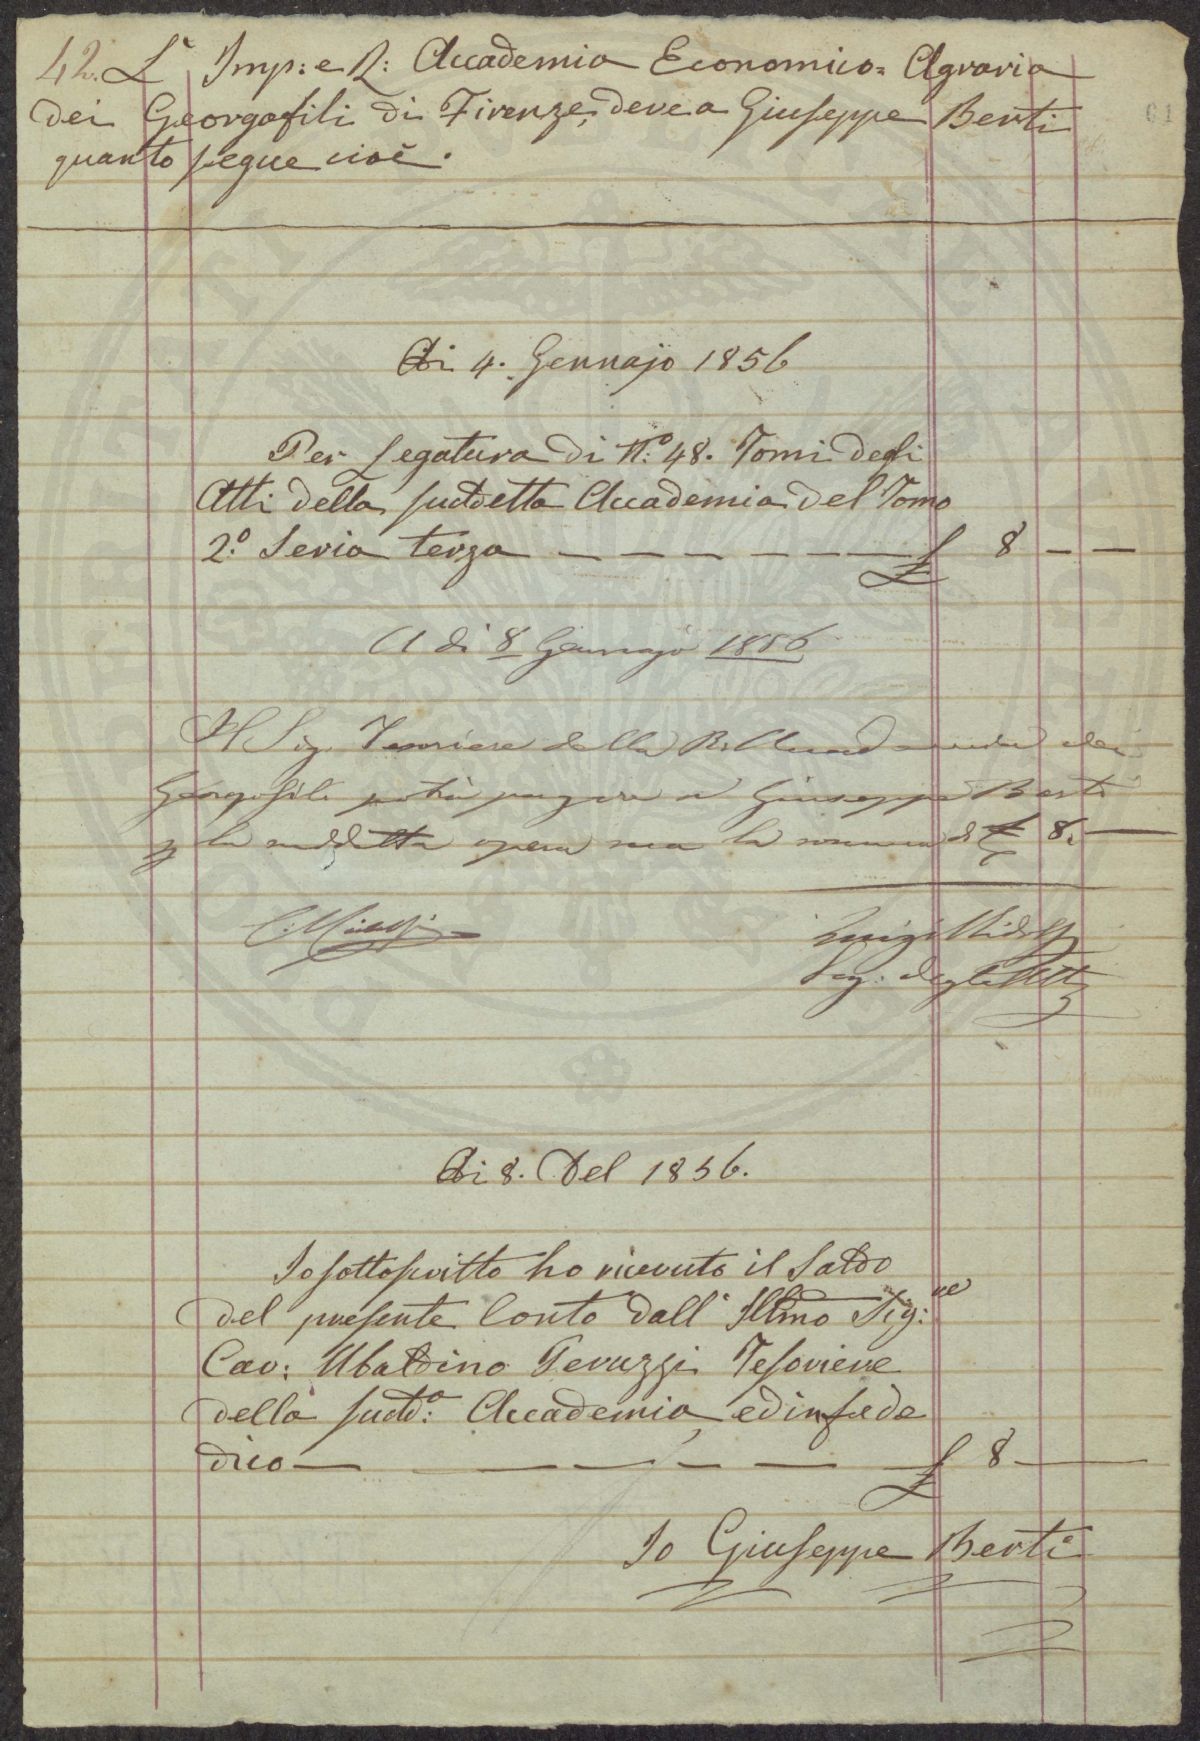 42. L' Imp: e R: Accademia Economico=Agraria
dei Georgofili di Firenze, deve a Giuseppe Berti
quanto segue cioè.
61
Adi 4. Gennajo 1856
Per Legatura di N.º 48. Tomi degli
Atti della suddetta Accademia del Tomo
2.º Seria terza — — — — — — £ 8 — —
A di 8 Gennajo 1856
Il Sig. Tesoriere della R. Accademia dei
Georgofili potrà pagare a Giuseppe Berti
p la suddetta opera sua la somma di £ 8. —
Luigi Ridolfi
Seg: degli Atti
Adi 8. Del 1856.
Io sottoscritto ho ricevuto il Saldo
del presente Conto dall' Illmo Sig:re
Cav: Ubaldino Peruzzi Tesoriere
della sudd:a Accademia, ed in fede
dico — — — — — — £ 8 —
Io Giuseppe Berti